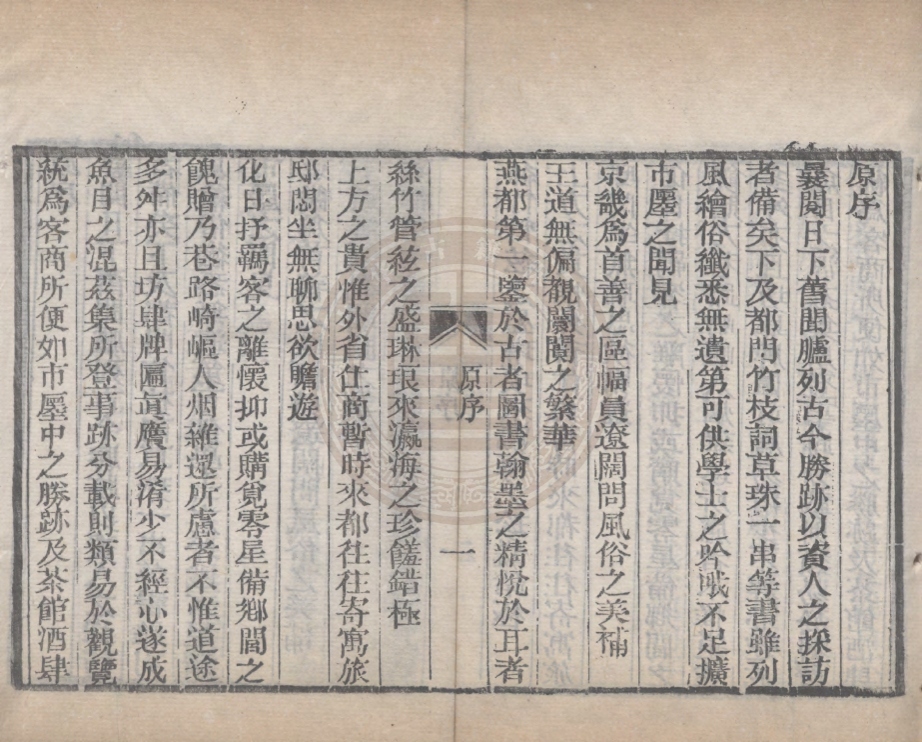 原序
曩閱日下舊聞臚列古今勝跡以資人之採訪
者備矣下及都門竹枝詞草珠一串等書雖列
風繪俗纖悉無遺第可供學士之吟哦不足擴
市廛之聞見
京畿為首善之區幅員遼闊問風俗之美補
王道無偏觀闤闠之繁華
燕都第一鑒於古者圖書翰墨之精悅於耳者
原序
一
絲竹管絃之盛琳琅來瀛海之珍饈錯極
上方之貴惟外省仕商暫時來都往往寄寓旅
邸悶坐無聊思欲瞻遊
化日抒羈客之離懷抑或購覓零星備鄉閭之
餽贈乃巷路崎嶇人烟雜遝所慮者不惟道途
多舛亦且坊肆牌匾眞贋易淆少不經心遂成
魚目之混茲集所登事跡分載則類易於觀覽
統爲客商所便如市廛中之勝跡及茶館酒肆